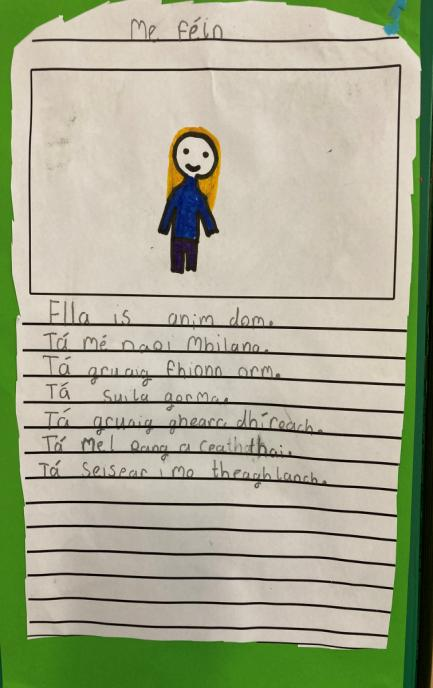 Me Féin
Ella is anim dom.
Tá mé naoi mbilana.
Tá gruaig fhionn orm.
Tá suila gorma.
Tá gruaig ghearr dhíreach.
Tá mel rang a ceaththai.
Tá seisear i mo theaghlanch.